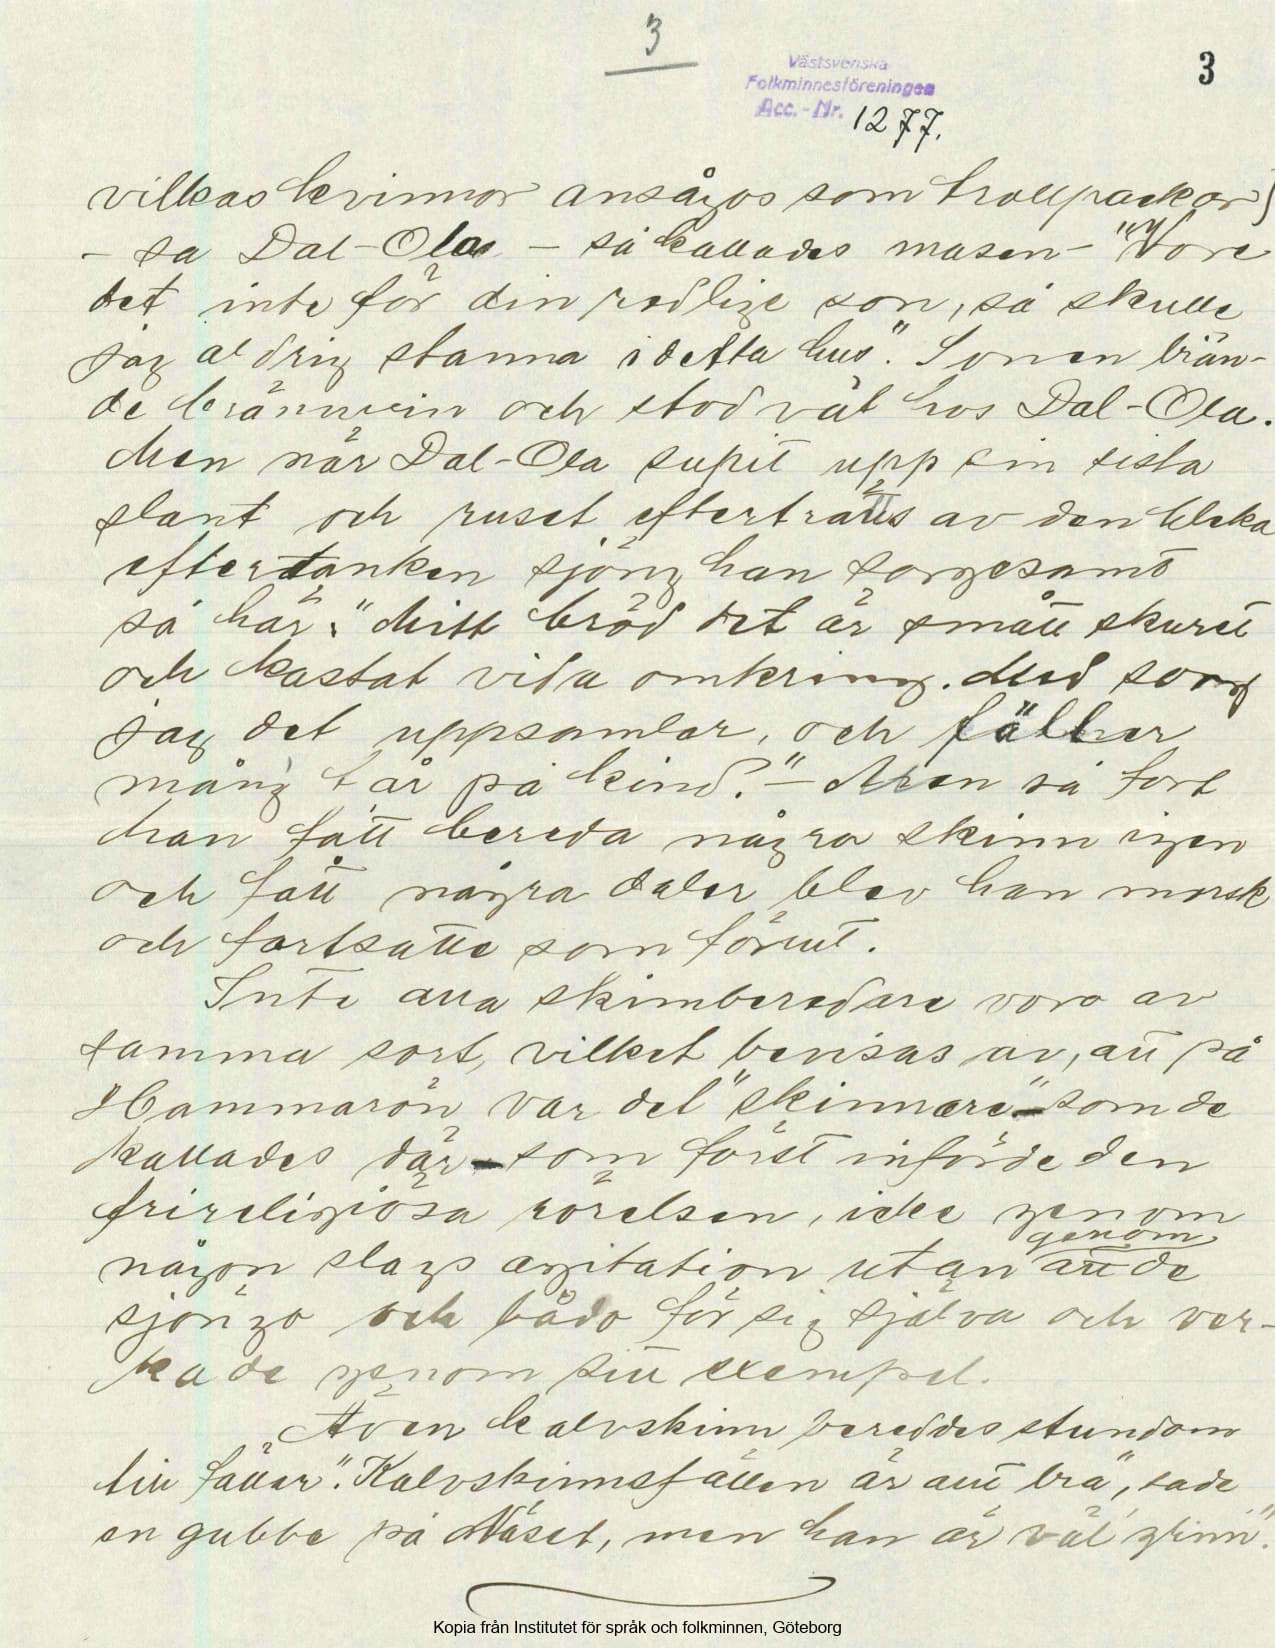 3
3
Västsvenska
Folkminnesföreningen
Acc.-Nr. 1277.
vilkas kvinnor ansågos som trollpackor)
– sa Dal-Ola – så kallades masen – "Vore
det inte för din redlige son, så skulle
jag aldrig stanna i detta hus". Sonen brän-
de brännvin och stod väl hos Dal-Ola.
Men när Dal-Ola supit upp sin sista
slant och ruset efterträtts av den bleka
eftertanken sjöng han sorgesamt
så här: "Mitt bröd det är smått skuret
och kastat vida omkring. Med sorg
jag det uppsamlar, och fäller
mång' tår på kind." – Men så fort
han fått bereda några skinn igen
och fått några daler blev han morsk
och fortsatte som förut.
Inte alla skinnberedare voro av
samma sort, vilket bevisas av, att på
Hammarön var det "skinnare" – som de
kallades där – som först införde den
frireligiösa rörelsen, icke genom
någon slags agitation utan genom att de
sjöngo och bådo för sig själva och ver-
kade genom sitt exempel.
Även kalvskinn bereddes stundom
till fällar. "Kalvskinnsfällen är allt bra", sade
en gubbe på Näset, "men han är väl glinn".
Kopia från Institutet för språk och folkminnen, Göteborg